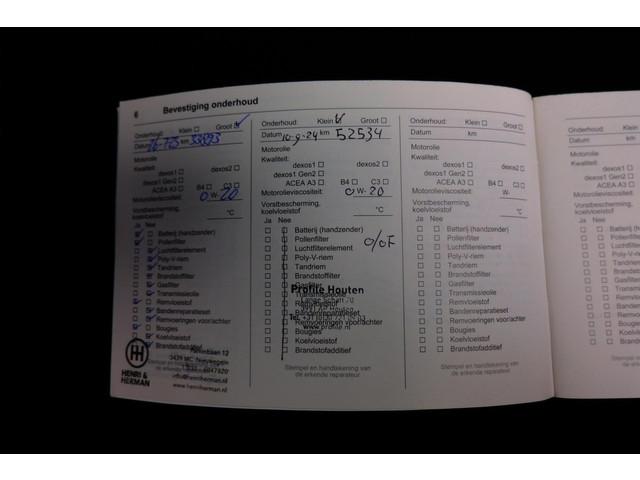 6 Bevestiging onderhoud
Onderhoud: Klein Groot
Datum km
Motorolie
Kwaliteit:
dexos1 dexos2
dexos1 Gen2
ACEA A3 B4 C3
Motorolieviscositeit: 0 W- 20
Vorstbescherming,
koelvloeistof °C
Ja Nee
Batterij (handzender)
Pollenfilter
Luchtfilterelement
Poly-V-riem
Tandriem
Brandstoffilter
Gasfilter
Transmissieolie
Remvloeistof
Bandenreparatieset
Remvoeringen voor/achter
Bougies
Koelvloeistof
Brandstofadditief
HH
HENRI &
HERMAN
3439 MC Nieuwegein
info@henriherman.nl
www.henriherman.nl
Onderhoud: Klein Groot
Datum 10-9-24 km 52534
Motorolie
Kwaliteit:
dexos1 dexos2
dexos1 Gen2
ACEA A3 B4 C3
Motorolieviscositeit: 0 W- 20
Vorstbescherming,
koelvloeistof °C
Ja Nee
Batterij (handzender)
Pollenfilter
Luchtfilterelement
Poly-V-riem
Tandriem
Brandstoffilter
Gasfilter
Profile Houten
Transmissieolie
Remvloeistof
Bandenreparatieset
Remvoeringen voor/achter
www.profile.nl
Bougies
Koelvloeistof
Brandstofadditief
Stempel en handtekening van
de erkende reparateur
Onderhoud: Klein Groot
Datum km
Motorolie
Kwaliteit:
dexos1 dexos2
dexos1 Gen2
ACEA A3 B4 C3
Motorolieviscositeit: W-
Vorstbescherming,
koelvloeistof °C
Ja Nee
Batterij (handzender)
Pollenfilter
Luchtfilterelement
Poly-V-riem
Tandriem
Brandstoffilter
Gasfilter
Transmissieolie
Remvloeistof
Bandenreparatieset
Remvoeringen voor/achter
Bougies
Koelvloeistof
Brandstofadditief
Stempel en handtekening van
de erkende reparateur